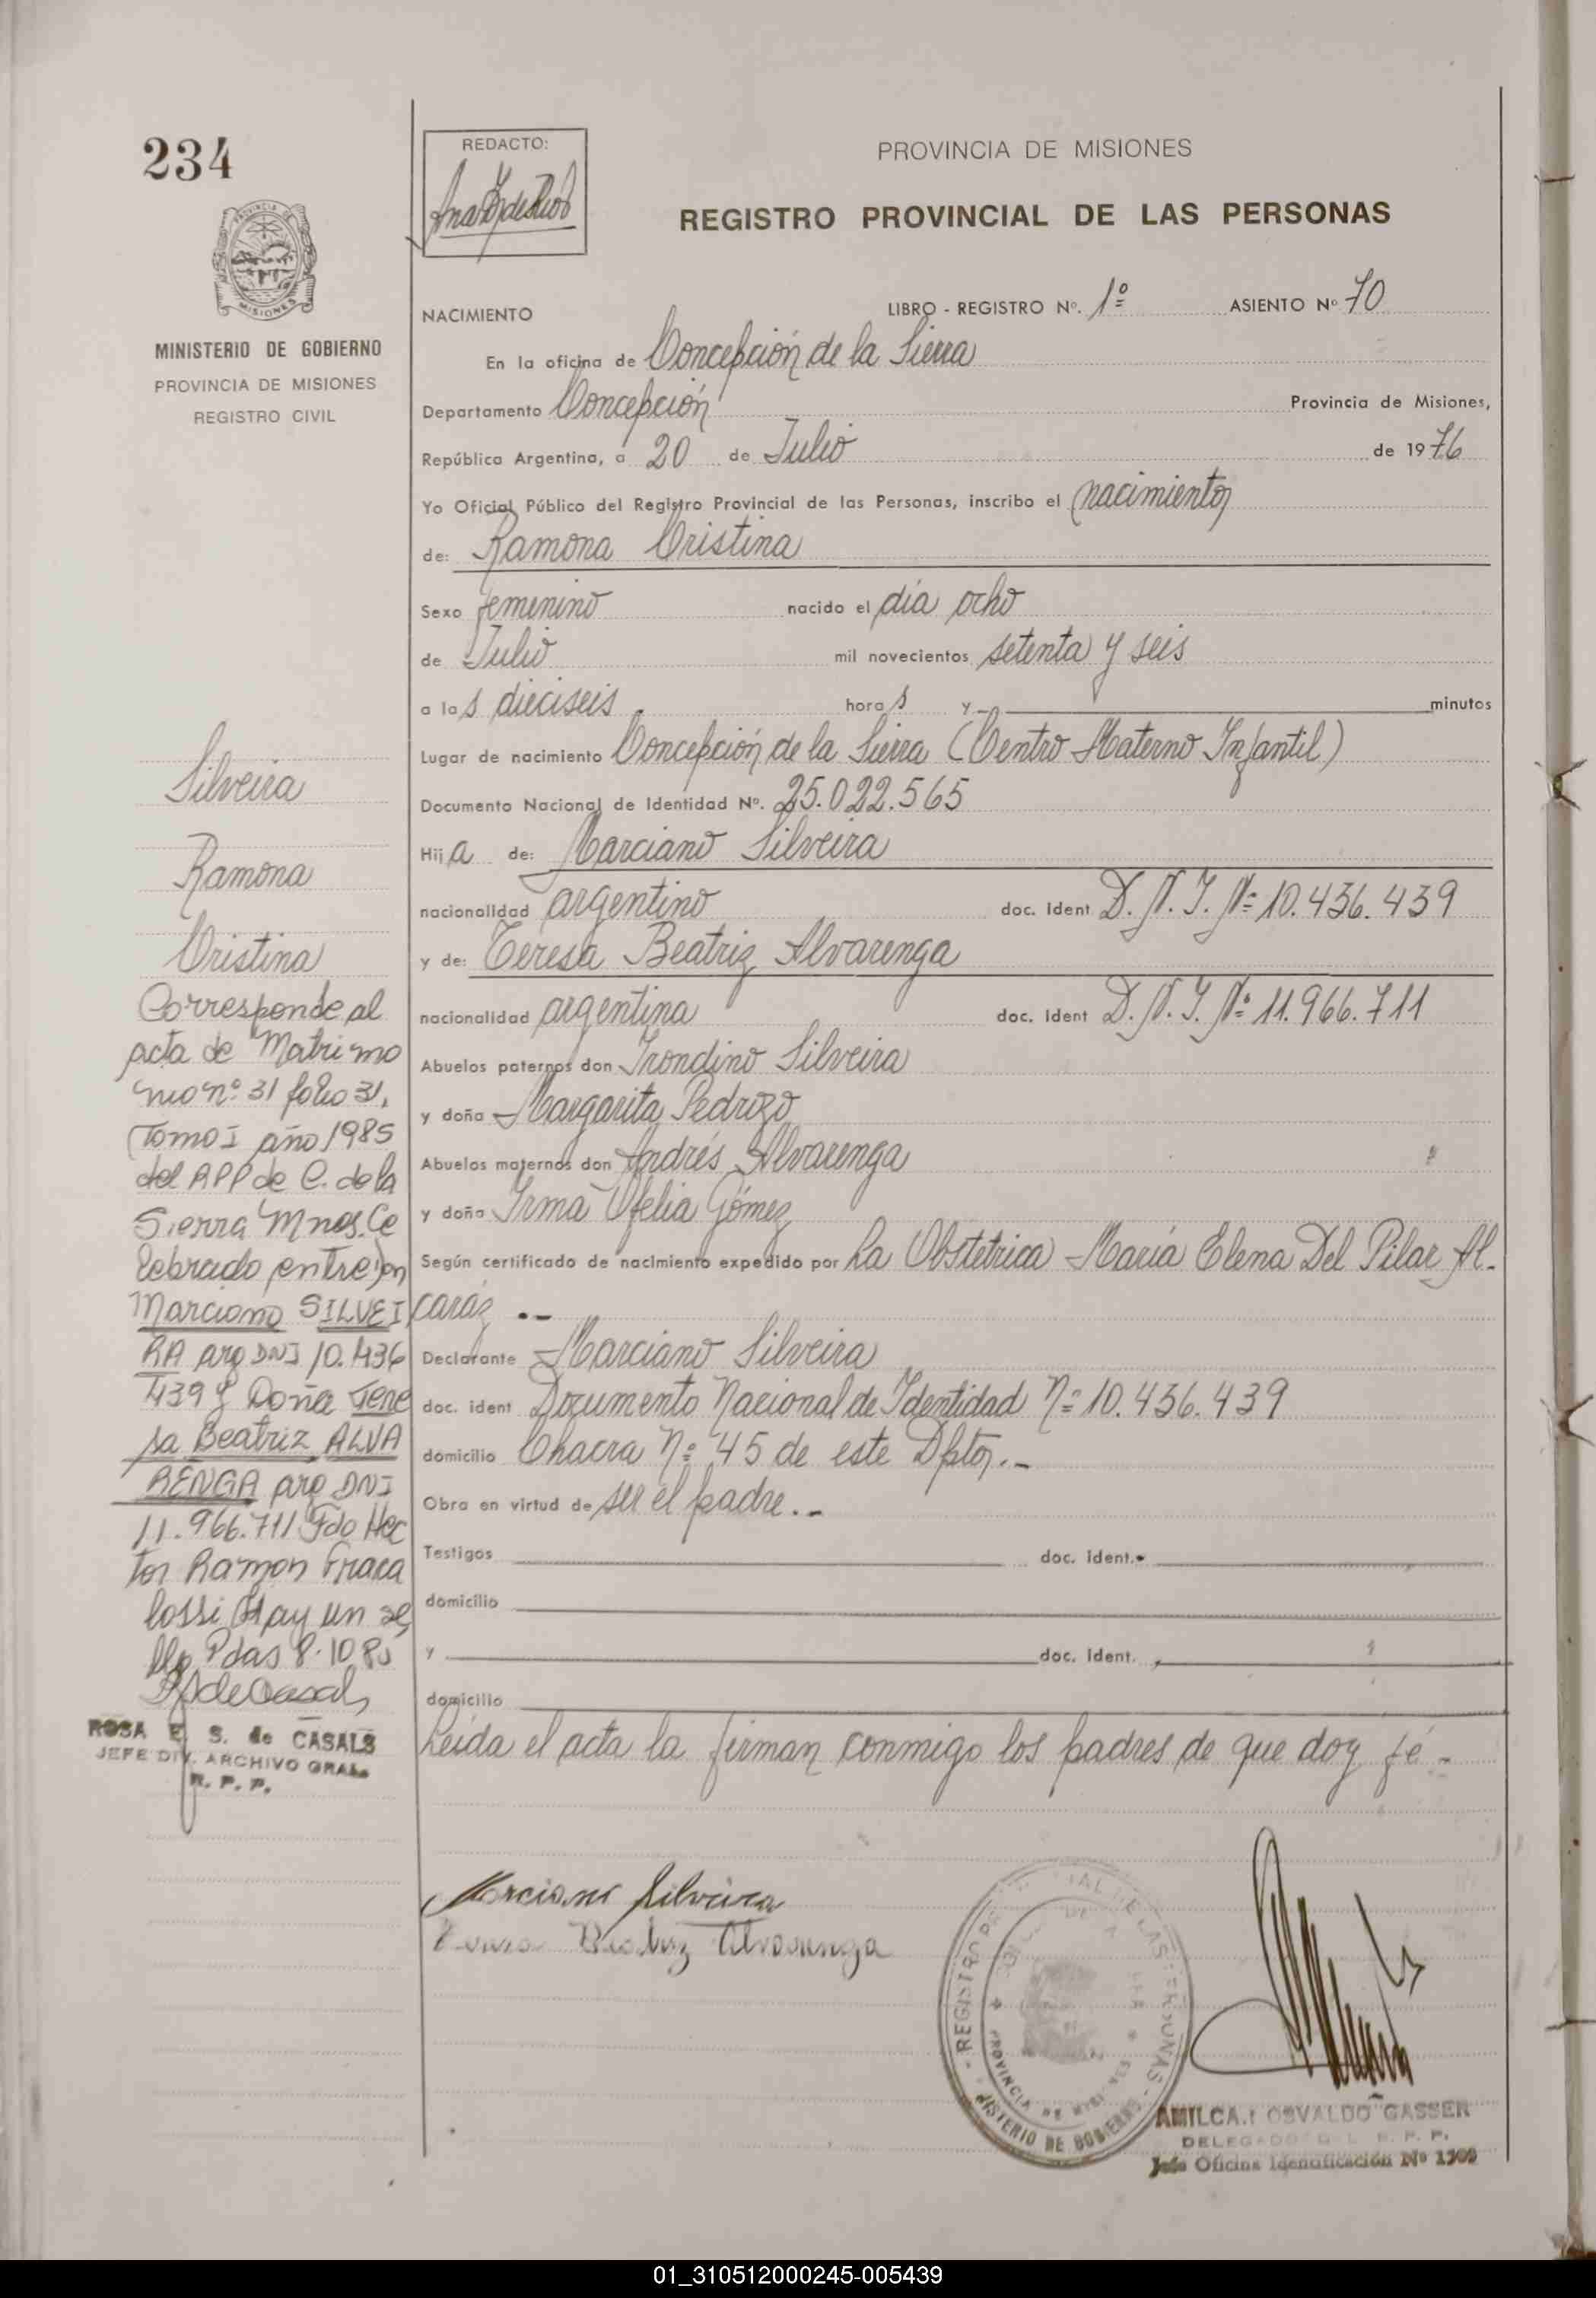 234
REDACTO:
PROVINCIA DE MISIONES
REGISTRO PROVINCIAL DE LAS PERSONAS
PROVINCIA DE
MISIONES
MINISTERIO DE GOBIERNO
PROVINCIA DE MISIONES
REGISTRO CIVIL
NACIMIENTO LIBRO - REGISTRO Nº. 1º ASIENTO Nº 70
En la oficina de Concepción de la Sierra
Departamento Concepción Provincia de Misiones,
República Argentina, a 20 de Julio de 1976
Yo Oficial Público del Registro Provincial de las Personas, inscribo el nacimiento
de: Ramona Cristina
Sexo femenino nacido el día ocho
de Julio mil novecientos setenta y seis
a las dieciseis horas y minutos
Lugar de nacimiento Concepción de la Sierra (Centro Materno Infantil)
Documento Nacional de Identidad Nº. 25.022.565
Hija de: Marciano Silveira
nacionalidad argentino doc. Ident D.N.I. Nº 10.436.439
y de: Teresa Beatriz Alvarenga
nacionalidad argentina doc. Ident D.N.I. Nº 11.966.711
Abuelos paternos don Irondino Silveira
y doña Margarita Pedrozo
Abuelos maternos don Andrés Alvarenga
y doña Irma Ofelia Gómez
Según certificado de nacimiento expedido por La Obstetrica María Elena Del Pilar Al-
caráz .-
Declarante Marciano Silveira
doc. ident Documento Nacional de Identidad Nº 10.436.439
domicilio Chacra Nº 45 de este Dpto.-
Obra en virtud de ser el padre.-
Testigos doc. ident.
domicilio
y doc. ident.
domicilio
Leída el acta la firman conmigo los padres de que doy fé.-
Silveira
Ramona
Cristina
Corresponde al
acta de Matrimo
nio nº 31 folio 31,
Tomo I año 1985
del RPP de C. de la
Sierra Mnes. Ce
lebrado entre Don
Marciano SILVEI
RA arg DNI 10.436
439 y Doña Tere
sa Beatriz ALVA
RENGA arg DNI
11.966.711 Fdo Hec
tor Ramon Fraca
lossi Hay un se
llo Pdas 8.10.85
ROSA E. S. de CASALS
JEFE DIV. ARCHIVO GRAL.
R. P. P.
Marciano Silveira
Teresa Beatriz Alvarenga
REGISTRO PROVINCIAL DE LAS PERSONAS
MINISTERIO DE GOBIERNO
PROVINCIA DE MISIONES
AMILCAR OSVALDO GASSER
DELEGADO DEL R. P. P.
Jefe Oficina Identificación Nº 1309
01_310512000245-005439